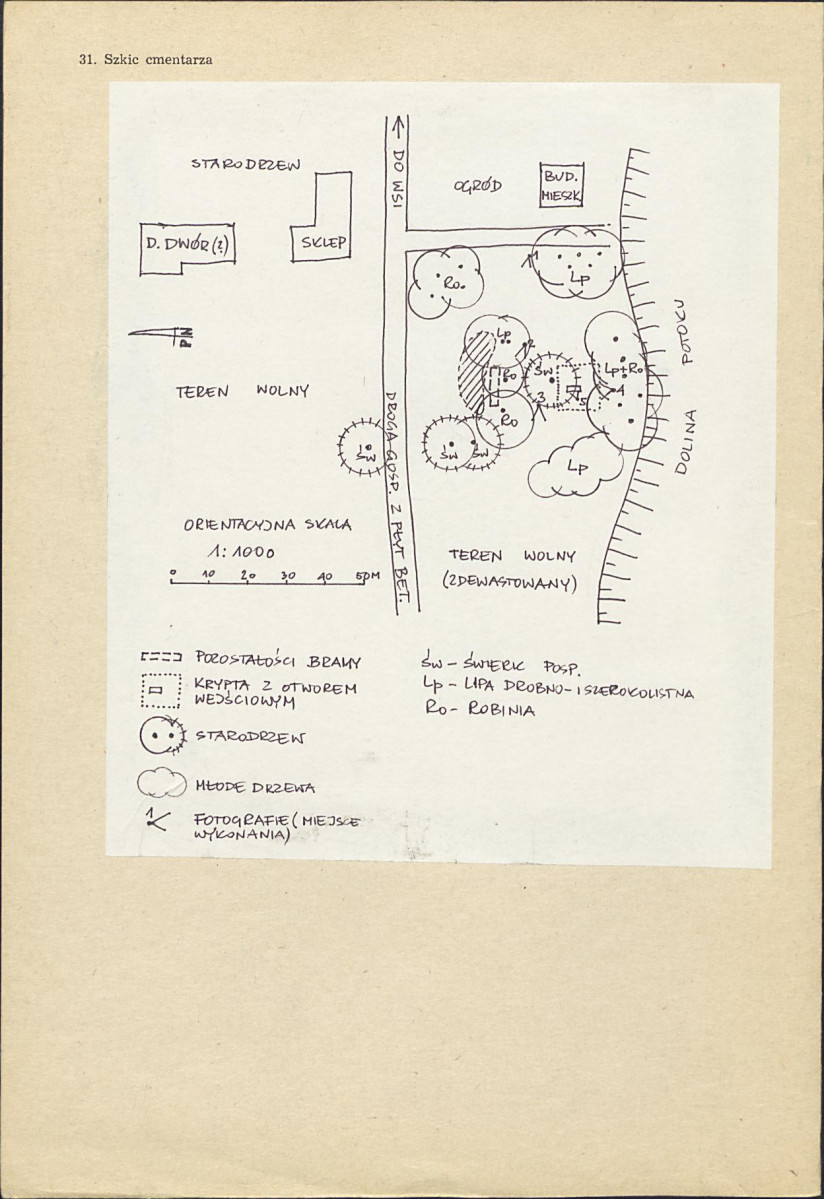 31. Szkic cmentarza
STARODRZEW
DO WSI
OGRÓD
BUD.
MIESZK
D. DWÓR(?)
SKLEP
1
Lp
Ro.
PN
Lp
2
POTOKU
Ro
Św
Lp+Ro
3
4
5
TEREN WOLNY
Ro
DROGA GOSP. Z PŁYT BET.
DOLINA
Św
Św
Św
Lp
ORIENTACYJNA SKALA
1:1000
0 10 20 30 40 50M
TEREN WOLNY
(ZDEWASTOWANY)
POZOSTAŁOŚCI BRAMY
KRYPTA Z OTWOREM
WEJŚCIOWYM
STARODRZEW
MŁODE DRZEWA
1
FOTOGRAFIE (MIEJSCE
WYKONANIA)
Św - ŚWIERK POSP.
Lp - LIPA DROBNO- I SZEROKOLISTNA
Ro - ROBINIA